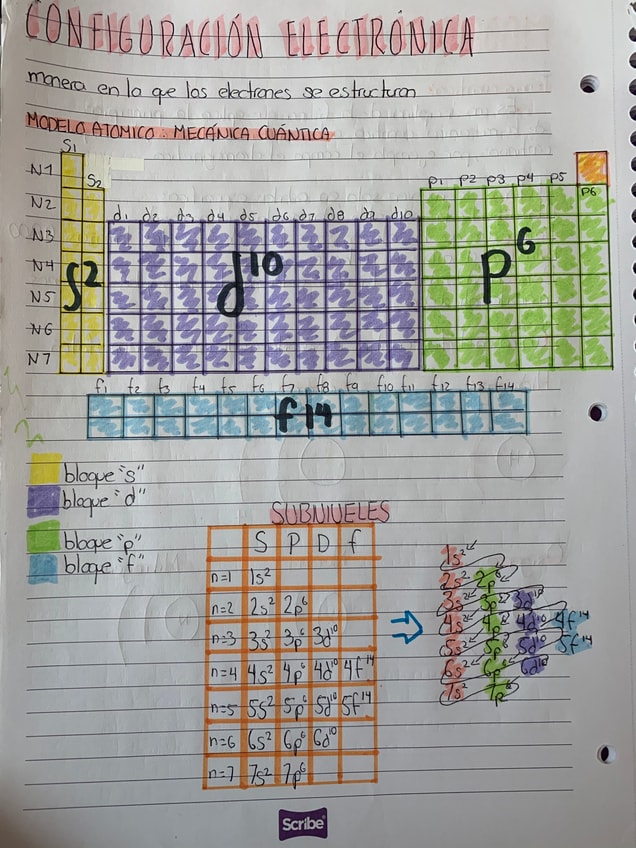 CONFIGURACIÓN ELECTRÓNICA
manera en la que los electrones se estructuran
MODELO ATOMICO: MECÁNICA CUÁNTICA
S1
N1 S2 P1 P2 P3 P4 P5 P6
N2
d1 d2 d3 d4 d5 d6 d7 d8 d9 d10
N3
N4
S2 d10 p6
N5
N6
N7
f1 f2 f3 f4 f5 f6 f7 f8 f9 f10 f11 f12 f13 f14
f14
bloque "s"
bloque "d"
bloque "p"
bloque "f"
SUBNIVELES
S P D f
n=1 1s²
n=2 2s² 2p⁶
n=3 3s² 3p⁶ 3d¹⁰
n=4 4s² 4p⁶ 4d¹⁰ 4f¹⁴
n=5 5s² 5p⁶ 5d¹⁰ 5f¹⁴
n=6 6s² 6p⁶ 6d¹⁰
n=7 7s² 7p⁶
1s²
2s² 2p⁶
3s² 3p⁶ 3d¹⁰
4s² 4p⁶ 4d¹⁰ 4f¹⁴
5s² 5p⁶ 5d¹⁰ 5f¹⁴
6s² 6p⁶ 6d¹⁰
7s² 7p⁶
Scribe